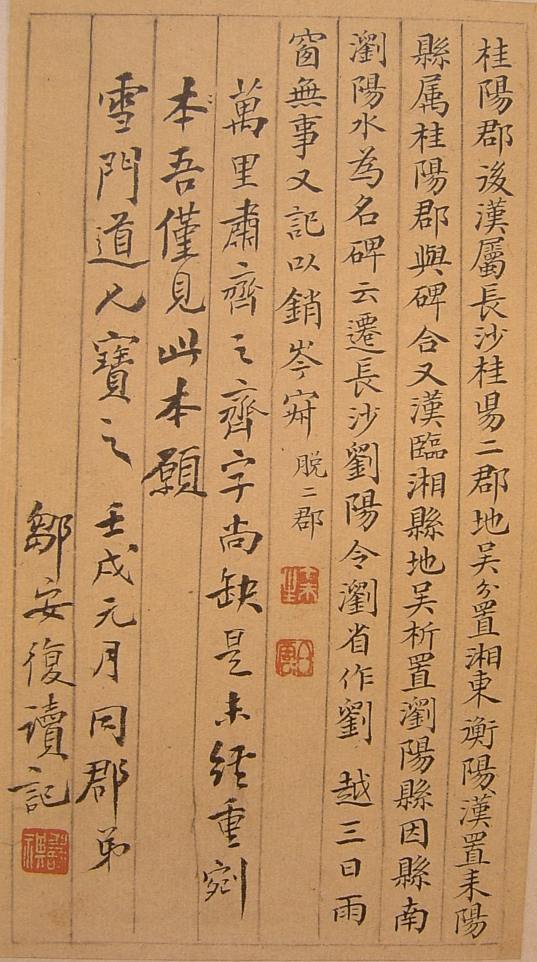 桂陽郡後漢屬長沙桂昜二郡地吴分置湘東衡陽漢置耒陽
縣属桂陽郡與碑合又漢臨湘縣地吴析置瀏陽縣因縣南
瀏陽水為名碑云遷長沙劉陽令瀏省作劉 越三日雨
窗無事又記以銷岑寂 脱二郡
萬里肅齊之齊字尚缺是未經重剜
本吾僅見此本願
雪門道人寶之 壬戌元月同郡弟
鄒安復讀記